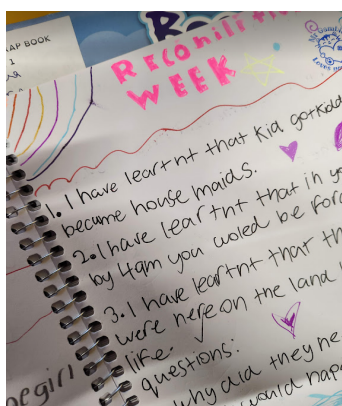 AP BOOK
1
RECONIliTi
WEEK
1. I have leartnt that kid gotkidd
became house maids.
2. I have leartnt that in
by 4am you woled be for
3. I have leartnt that th
were here on the land
like.
questions:
why did they he
would hap
egirl